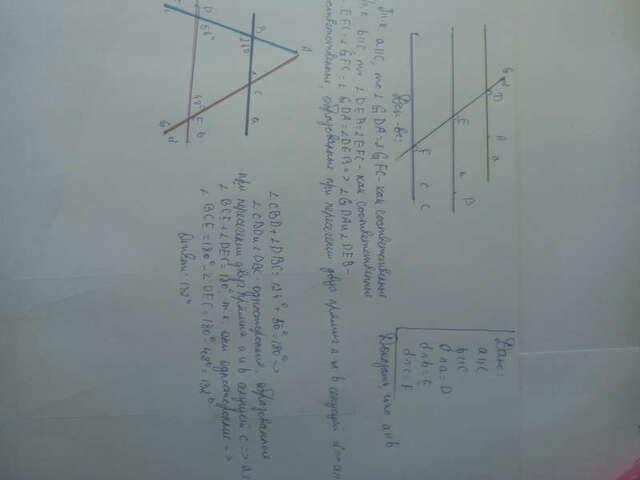 Дано:
a||c
b||c
d∩a=D
d∩b=E
d∩c=F
Доказать, что a||b
Док-во:
G d
D A a
E b B
F c C
Т.к. a||c, то ∠GDA=∠GFC - как соответственные
Т.к. b||c, то ∠DEB=∠EFC - как соответственные
∠EFC=∠GFC=∠GDA=∠DEB => ∠GDA и ∠DEB -
соответственные, образованные при пересечении двух прямых a и b секущей d =>
A
B
124°
C
a
D
56°
48°
E b
G d
∠CBD+∠DBC=124°+56°=180° =>
односторонние, образованные
при пересечении двух прямых a и b секущей c =>
∠BCE+∠DEC=180°, т.к. они односторонние =>
∠BCE=180°-∠DEC=180°-48°=132°
Ответ: 132°